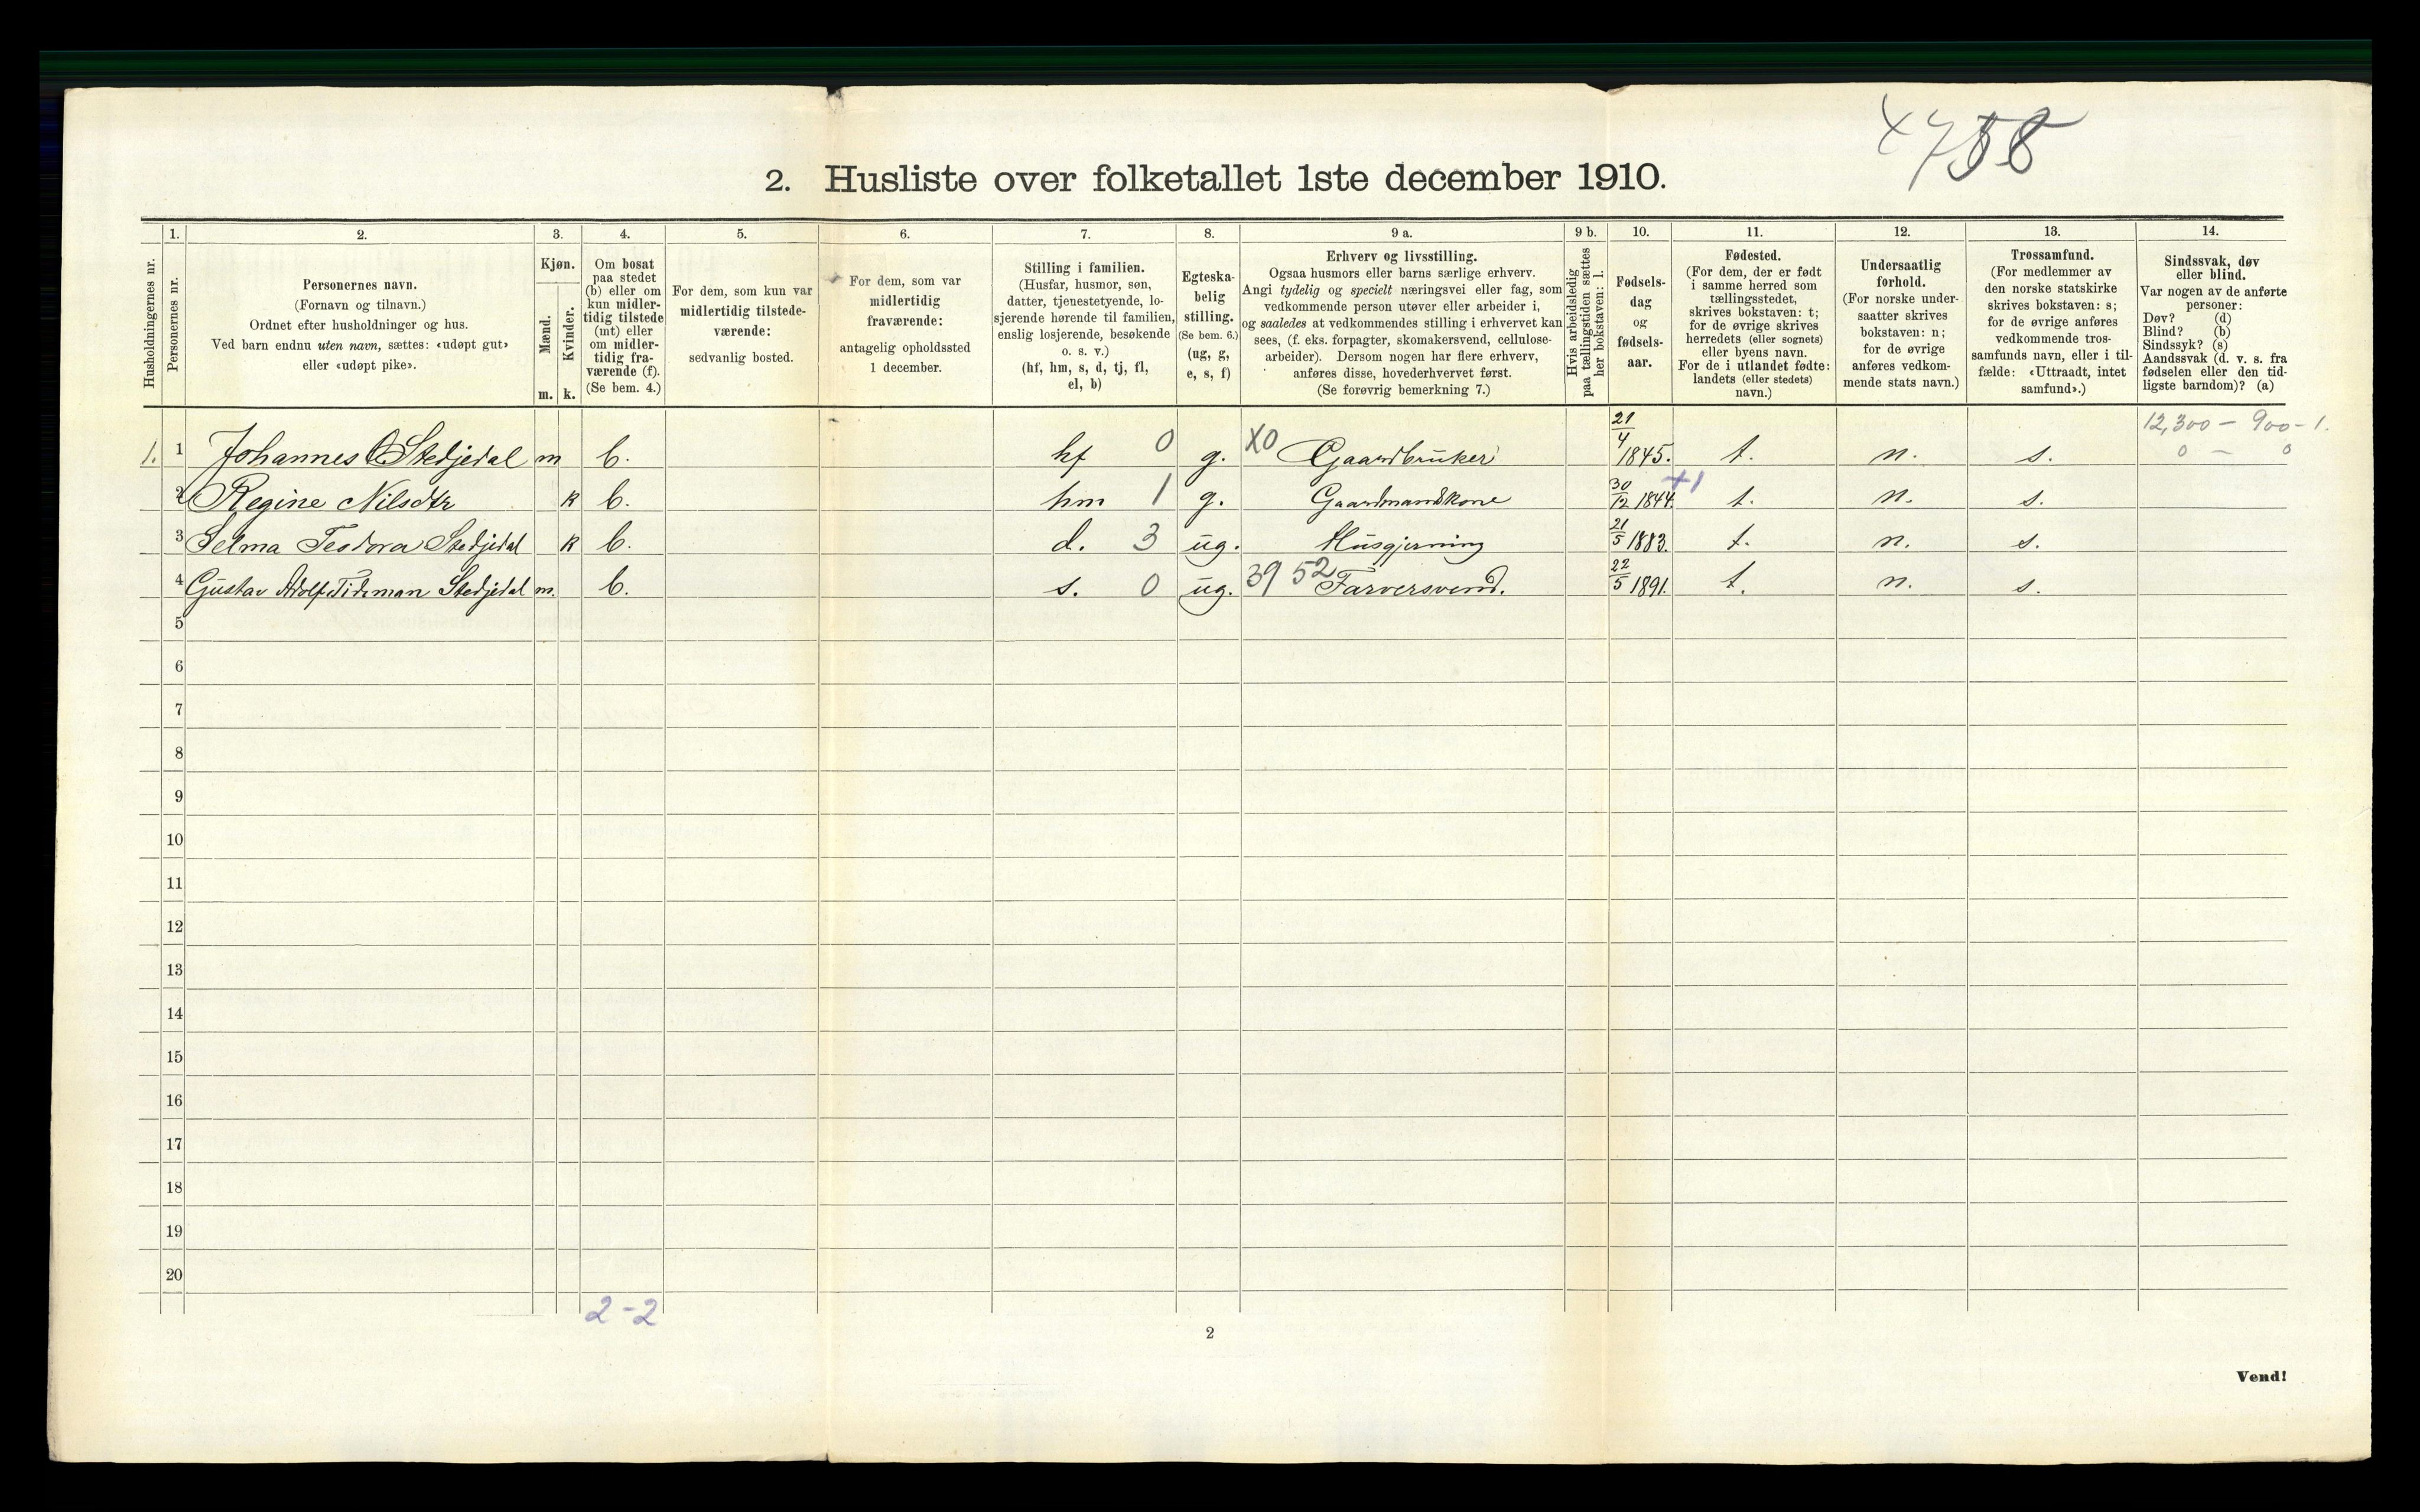 2. Husliste over folketallet 1ste december 1910.
Husholdningernes nr.
1.
Personernes nr.
2.
Personernes navn.
(Fornavn og tilnavn.)
Ordnet efter husholdninger og hus.
Ved barn endnu uten navn, sættes: «udøpt gut»
eller «udøpt pike».
3.
Kjøn.
Mænd.
Kvinder.
m. k.
4.
Om bosat
paa stedet
(b) eller om
kun midler-
tidig tilstede
(mt) eller
om midler-
tidig fra-
værende (f).
(Se bem. 4.)
5.
For dem, som kun var
midlertidig tilstede-
værende:
sedvanlig bosted.
6.
For dem, som var
midlertidig
fraværende:
antagelig opholdssted
1 december.
7.
Stilling i familien.
(Husfar, husmor, søn,
datter, tjenestetyende, lo-
sjerende hørende til familien,
enslig losjerende, besøkende
o. s. v.)
(hf, hm, s, d, tj, fl,
el, b)
8.
Egteska-
belig
stilling.
(Se bem. 6.)
(ug, g,
e, s, f)
9 a.
Erhverv og livsstilling.
Ogsaa husmors eller barns særlige erhverv.
Angi tydelig og specielt næringsvei eller fag, som
vedkommende person utøver eller arbeider i,
og saaledes at vedkommendes stilling i erhvervet kan
sees, (f. eks. forpagter, skomakersvend, cellulose-
arbeider). Dersom nogen har flere erhverv,
anføres disse, hovederhvervet først.
(Se forøvrig bemerkning 7.)
9 b.
Hvis arbeidsledig
paa tællingstiden sættes
her bokstaven: l.
10.
Fødsels-
dag
og
fødsels-
aar.
11.
Fødested.
(For dem, der er født
i samme herred som
tællingsstedet,
skrives bokstaven: t;
for de øvrige skrives
herredets (eller sognets)
eller byens navn.
For de i utlandet fødte:
landets (eller stedets)
navn.)
12.
Undersaatlig
forhold.
(For norske under-
saatter skrives
bokstaven: n;
for de øvrige
anføres vedkom-
mende stats navn.)
13.
Trossamfund.
(For medlemmer av
den norske statskirke
skrives bokstaven: s;
for de øvrige anføres
vedkommende tros-
samfunds navn, eller i til-
fælde: «Uttraadt, intet
samfund».)
14.
Sindssvak, døv
eller blind.
Var nogen av de anførte
personer:
Døv? (d)
Blind? (b)
Sindssyk? (s)
Aandssvak (d. v. s. fra
fødselen eller den tid-
ligste barndom)? (a)
12,300 - 900 - 1.
0 - 0
1. 1 Johannes O Stedjedal m b. hf 0 g. X0 Gaardbruker 21/4 1845. t. n. s.
2 Regine Nilsdtr k b. hm 1 g. Gaardmandskone 30/12 1844. +1 t. n. s.
3 Selma Teodora Stedjedal k b. d. 3 ug. Husgjerning 21/5 1883. t. n. s.
4 Gustav Adolf Tideman Stedjedal m. b. s. 0 ug. 39 52 Farversvend. 22/5 1891. t. n. s.
5
6
7
8
9
10
11
12
13
14
15
16
17
18
19
20
2-2
2
Vend!